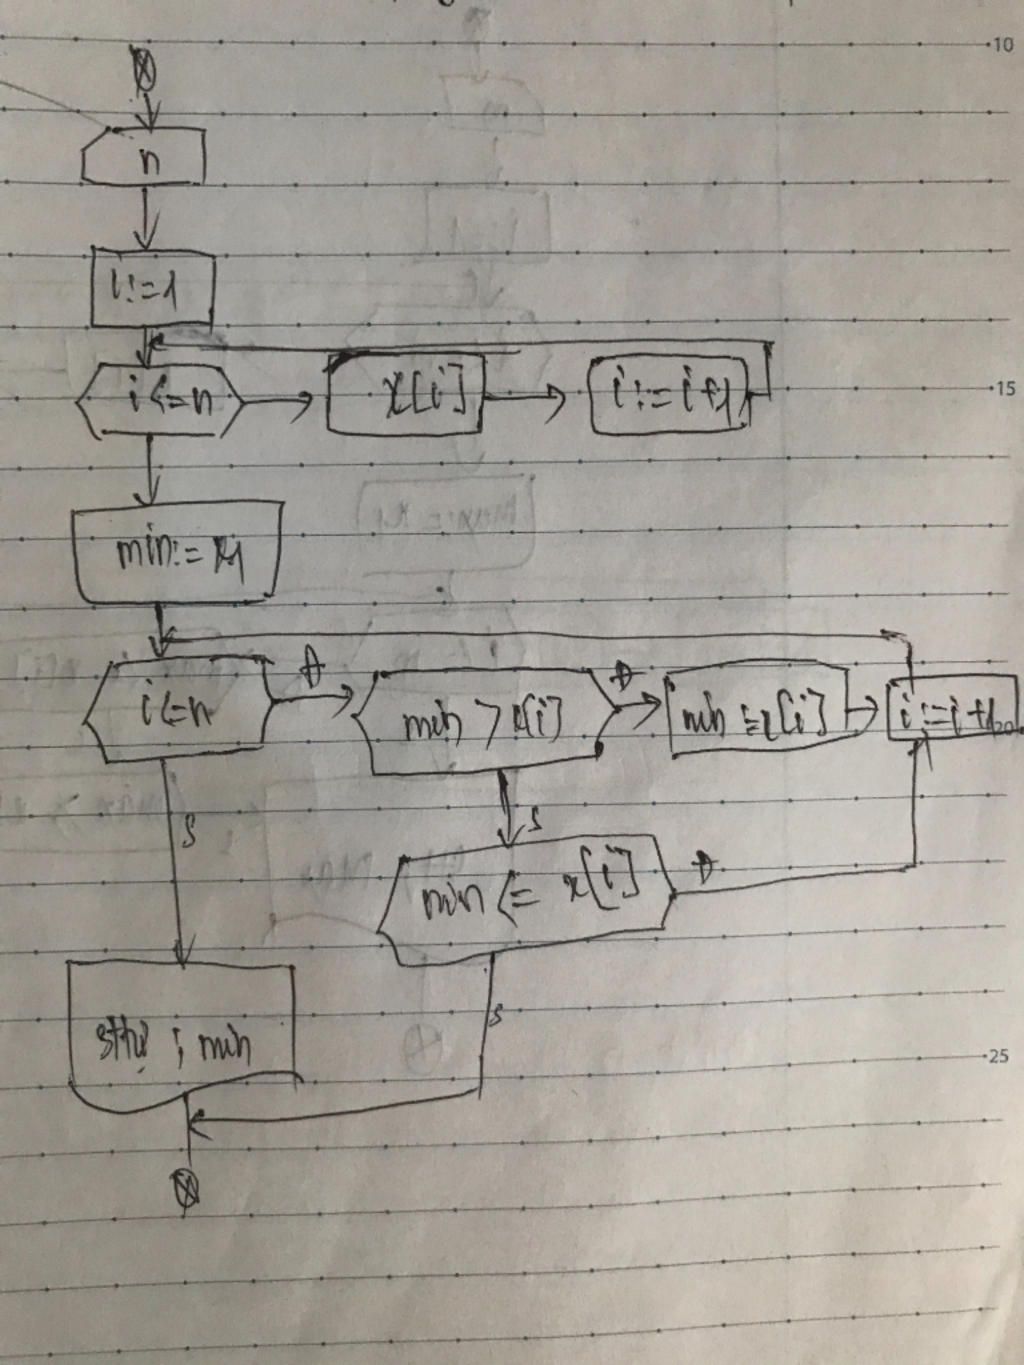 10
n
i:=1
i<=n x[i] i:=i+1
15
min:= x1
i<=n Đ min > x[i] Đ min := x[i] i:=i+1
20
S S
min <= x[i] Đ
S
; min
25